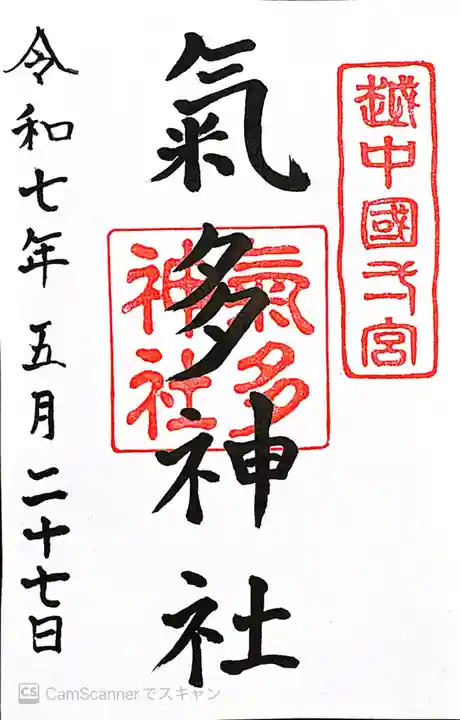 越中國弌宮
氣多神社
氣多
神社
令和七年五月二十七日
CS CamScannerでスキャン